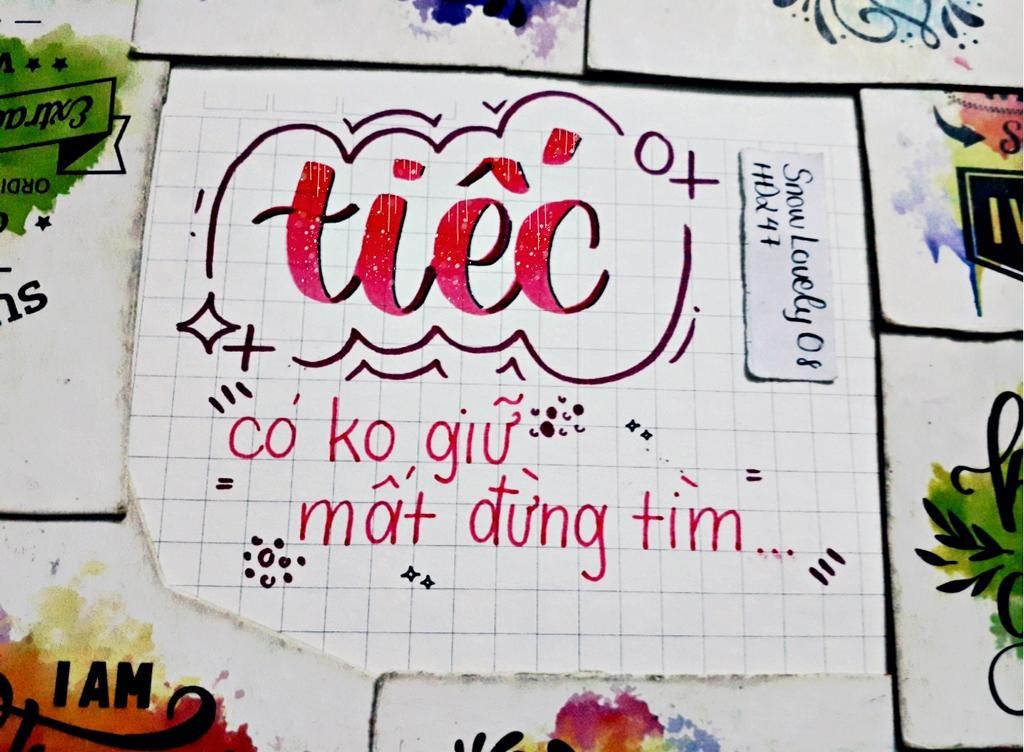 tiếc
có ko giữ
mất đừng tìm...
Snow Lovely 08
HDx47
Extrao
ORDI
su
I AM